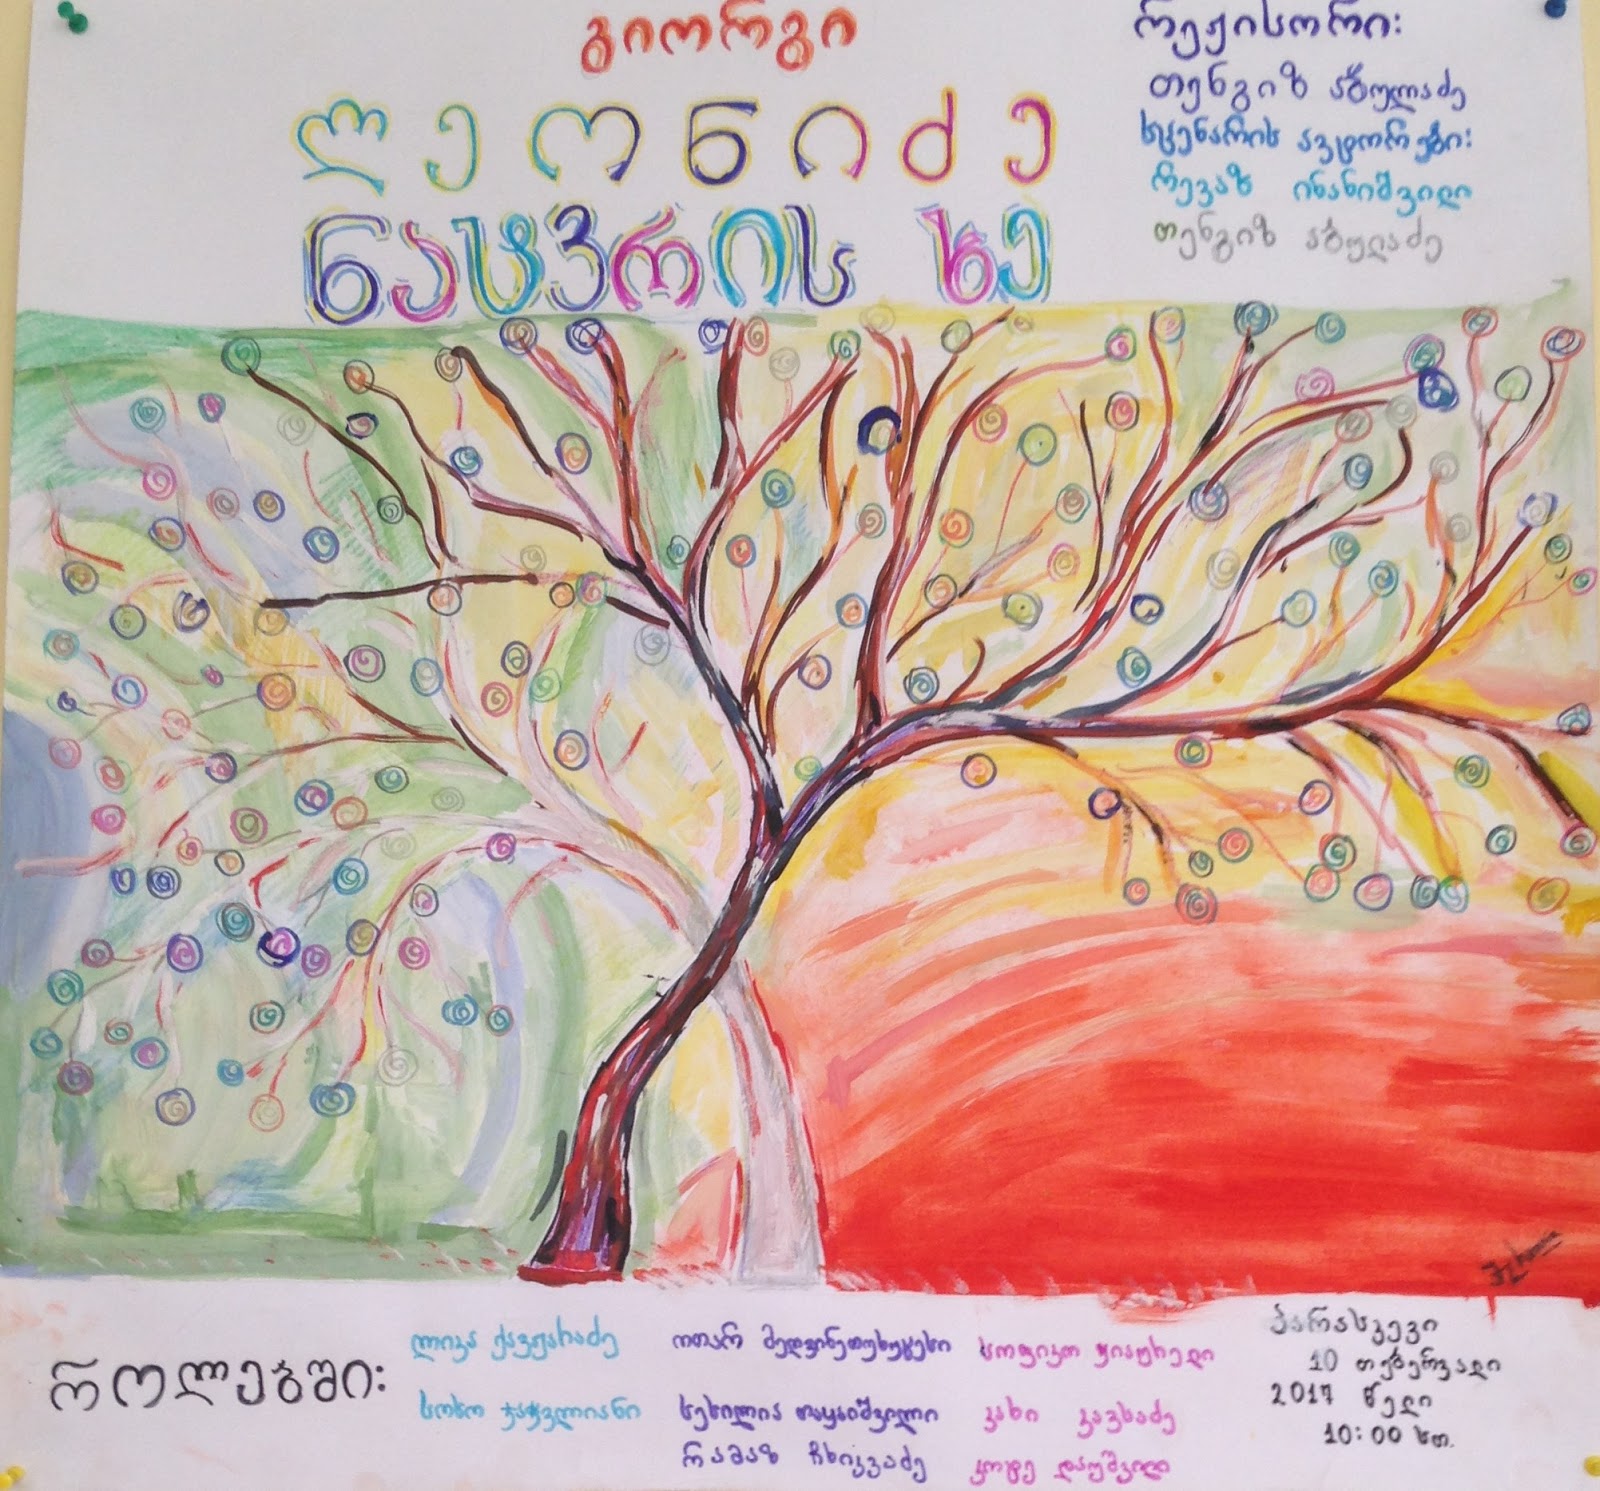 გიორგი
ლეონიძე
ნატვრის ხე
რეჟისორი:
თენგიზ აბულაძე
სცენარის ავტორები:
რევაზ ინანიშვილი
თენგიზ აბულაძე
როლებში:
ლიკა ქავჟარაძე
სოსო ჯაჭვლიანი
ოთარ მეღვინეთუხუცესი
სესილია თაყაიშვილი
რამაზ ჩხიკვაძე
სოფიკო ჭიაურელი
კახი კავსაძე
კოტე დაუშვილი
პარასკევი
10 თებერვალი
2017 წელი
10:00 სთ.